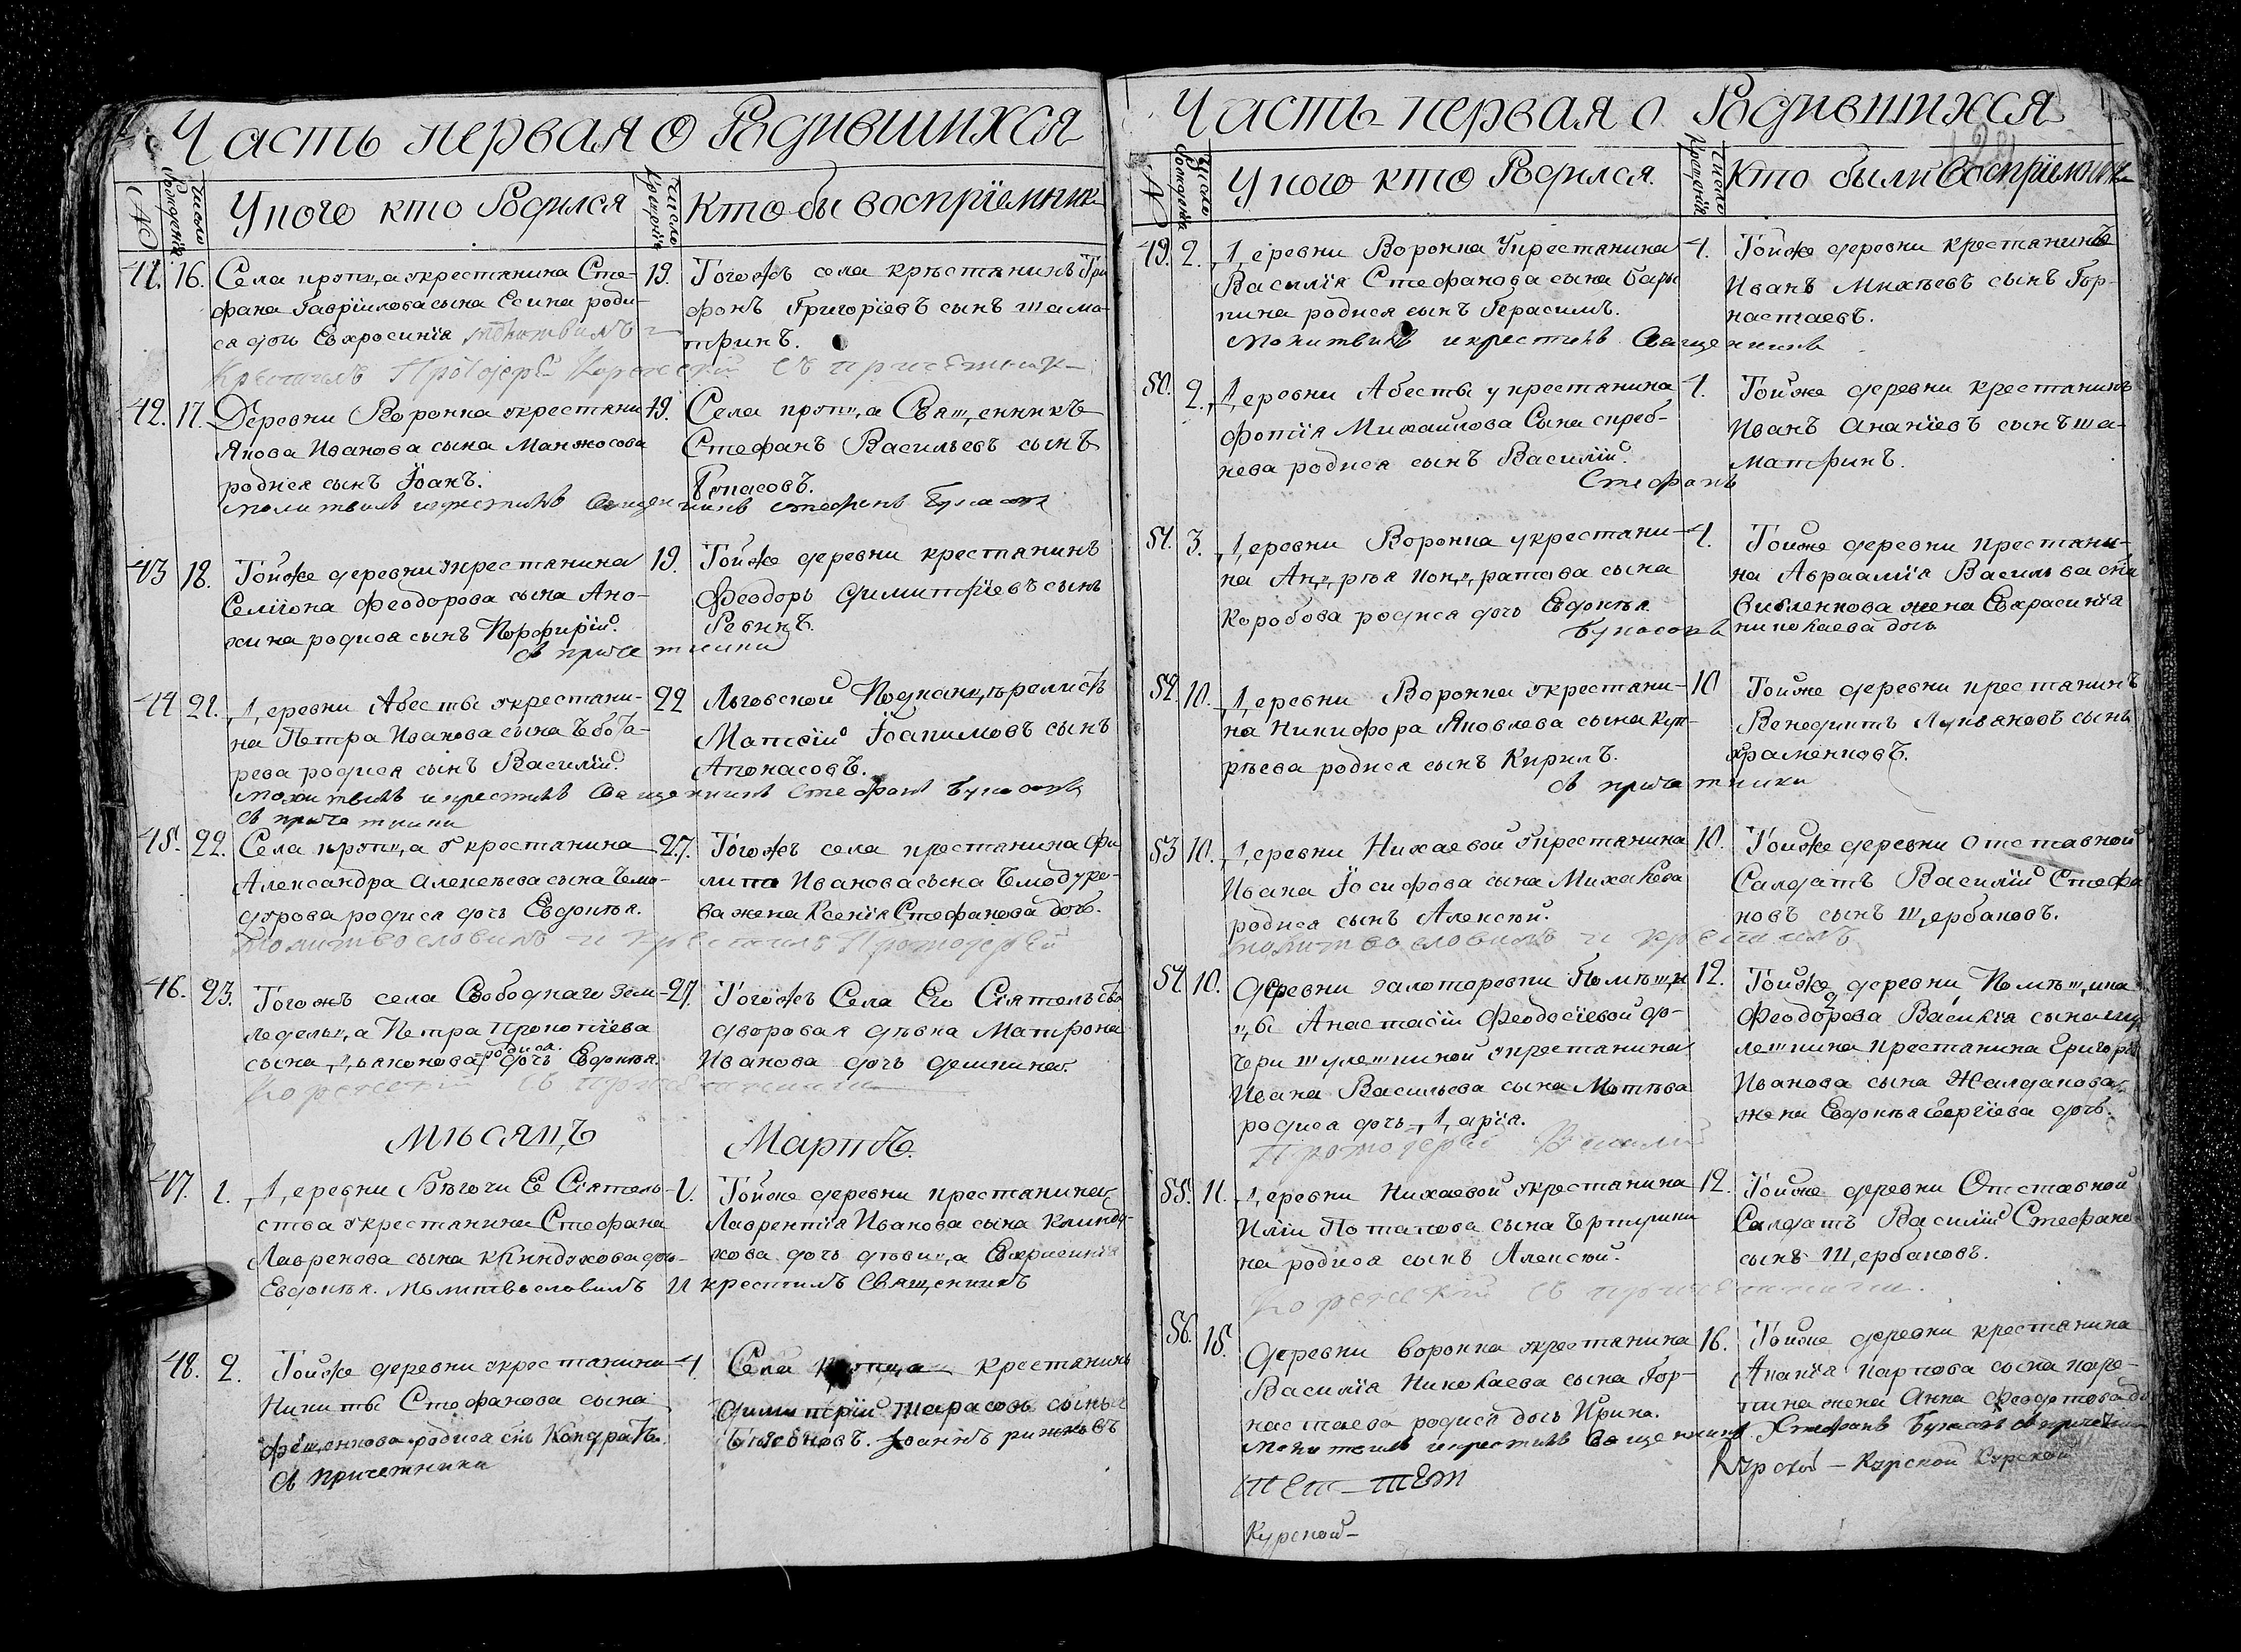 Часть первая о Родившихся
№
Число рожденія
У кого кто Родился
Число крещенія
Кто бы воспріемник
41. 16. 19.
Села кропц,а укрестанина Сте-
фана Гавріилова сына Есина роди-
са дочь Евхросинія молитвилъ и
Крестилъ Протоіерей Кореневскій съ причетник
Тогожъ села крѣстанинъ Три
фонъ Григоріевъ сынъ шама-
тринъ.
42. 17. 19.
Деревни Воронка укрестани
Якова Иванова сына Манжосова
родися сынъ Іоанъ.
молитвилъ икрестилъ Священникъ стефанъ Бунасовъ
Села кропц,а Свящ,енникъ
Стефанъ Васильевъ сынъ
Бунасовъ.
43 18. 19.
Тойже деревни укрестанина
Семіона Феодорова сына Ано-
хина родися сынъ Порфирій.
съ причетники
Тойже деревни крестанинъ
Феодоръ Димитріевъ сынъ
Ревинъ.
44 21. 22
Деревни Абесты укрестани-
на Петра Иванова сына Чебота-
рева родися сынъ Василій.
молитвилъ икрестилъ Священникъ Стефанъ Бунасовъ
съ причетники
Льговской Подканц,ѣрелистъ
Матсій Іоакимовъ сынъ
Апонасовъ.
45. 22. 27.
Села кропц,а укрестанина
Александра Алексѣева сына Чемо-
дурова родися дочь Евдокѣя.
Молитвословилъ и крестилъ Протоіерей
Тогожъ села крестанина Фи
липа Иванова сына Чемодуро-
ва жена Ксенія Стефанова дочь.
46. 23. 27.
Тогожъ села Свободнаго Зем-
ледельц,а Петра Прокопіева
сына Дьяконова родися дочь Евдокѣя.
Кореневскій съ причетники
Тогожъ Села Его Сіятельства
дворовая дѣвка Матрона
Иванова дочь дешкина.
Мѣсяцъ Мартъ.
47. 1. 1.
Деревни Бѣгочи Е Сіятель-
ства укрестанина Стефана
Лавренова сына Клиндухова дочь
Евдокѣя. Молитвословилъ и крестилъ Священникъ
Тойже деревни крестанина
Лаврентія Иванова сына Клинду-
хова дочь дѣвиц,а Евхросинія
48. 2. 4
Тойже деревни укрестанина
Никиты Стефанова сына
Фещенкова родися снъ Кондратъ.
съ причетники
Села кропц,а крестанинъ
Димитрій Тарасовъ сынъ
Іоаннъ рижковъ
Часть первая о Родившихся
№
Число Рожденія
У кого кто Родился.
Число Крещенія
Кто были Воспріемник
49. 2. 4.
Деревни Воронка Укрестанина
Василія Стефанова сына Бары
кина родися сынъ Герасимъ.
молитвилъ икрестилъ Священникъ
Тойже деревни крестанинъ
Иванъ Михѣевъ сынъ Гор-
настаевъ.
50. 2. 4.
Деревни Абесты укрестанина
Фотія Михайлова Сына скреб-
нева родися сынъ Василій.
Стефанъ
Тойже деревни крестанинъ
Иванъ Ананіевъ сынъ ша-
матринъ.
51. 3. 4.
Деревни Воронка укрестани-
на Андрѣя Кондратова сына
Коробова родися дочь Евдокѣя.
Бунасовъ
Тойже деревни крестани-
на Авраамія Васильва сна
Сивленкова жена Евхрасинія
николаева дочь
52. 10. 10
Деревни Воронка укрестани-
на Никифора Яковлева сына Куп-
рѣева родися сынъ Кирилъ.
съ причетники
Тойже деревни крестанинъ
Венедиктъ Лукьяновъ сынъ
храменковъ.
53 10. 10.
Деревни Нихаевой укрестанина
Ивана Іосифова сына Михалева
родися сынъ Алексѣй.
молитвословилъ и крестилъ
Тойже деревни Отставной
Салдатъ Василій Стефа
новъ сынъ щ,ербаковъ.
54. 10. 12.
Деревни залоторевки Помѣщи
ц,ы Анастасіи Феодосіевой до-
чери шулешкиной укрестанина
Ивана Васильева сына Мотѣва
родися дочь Дарія.
Протоіерей Василій
Тойже деревни Помѣщ,ика
Феодорова Василія сына шу
лешкина крестанина Григорія
Иванова сына Жалдакова
жена Евдокѣя Сергіева дочь.
55. 11. 12.
Деревни Нихаевой укрестанина
Иліи Потапова сына Чертушки
на родися сынъ Алексѣй.
Кореневскій съ причетники.
Тойже деревни Отставной
Салдатъ Василій Стефано
сынъ Щ,ербаковъ.
56. 15. 16.
Деревни воронка укрестанина
Василія Николаева сына Гор-
настаева родися дочь Ирина.
молитвилъ икрестилъ Священникъ Стефанъ Бунасовъ съ причетники
Тойже деревни крестанина
Ананія Карпова сына каре-
кина жена Анна Феодотова до
Курской — Курской Курской
тет — тет
Курской —